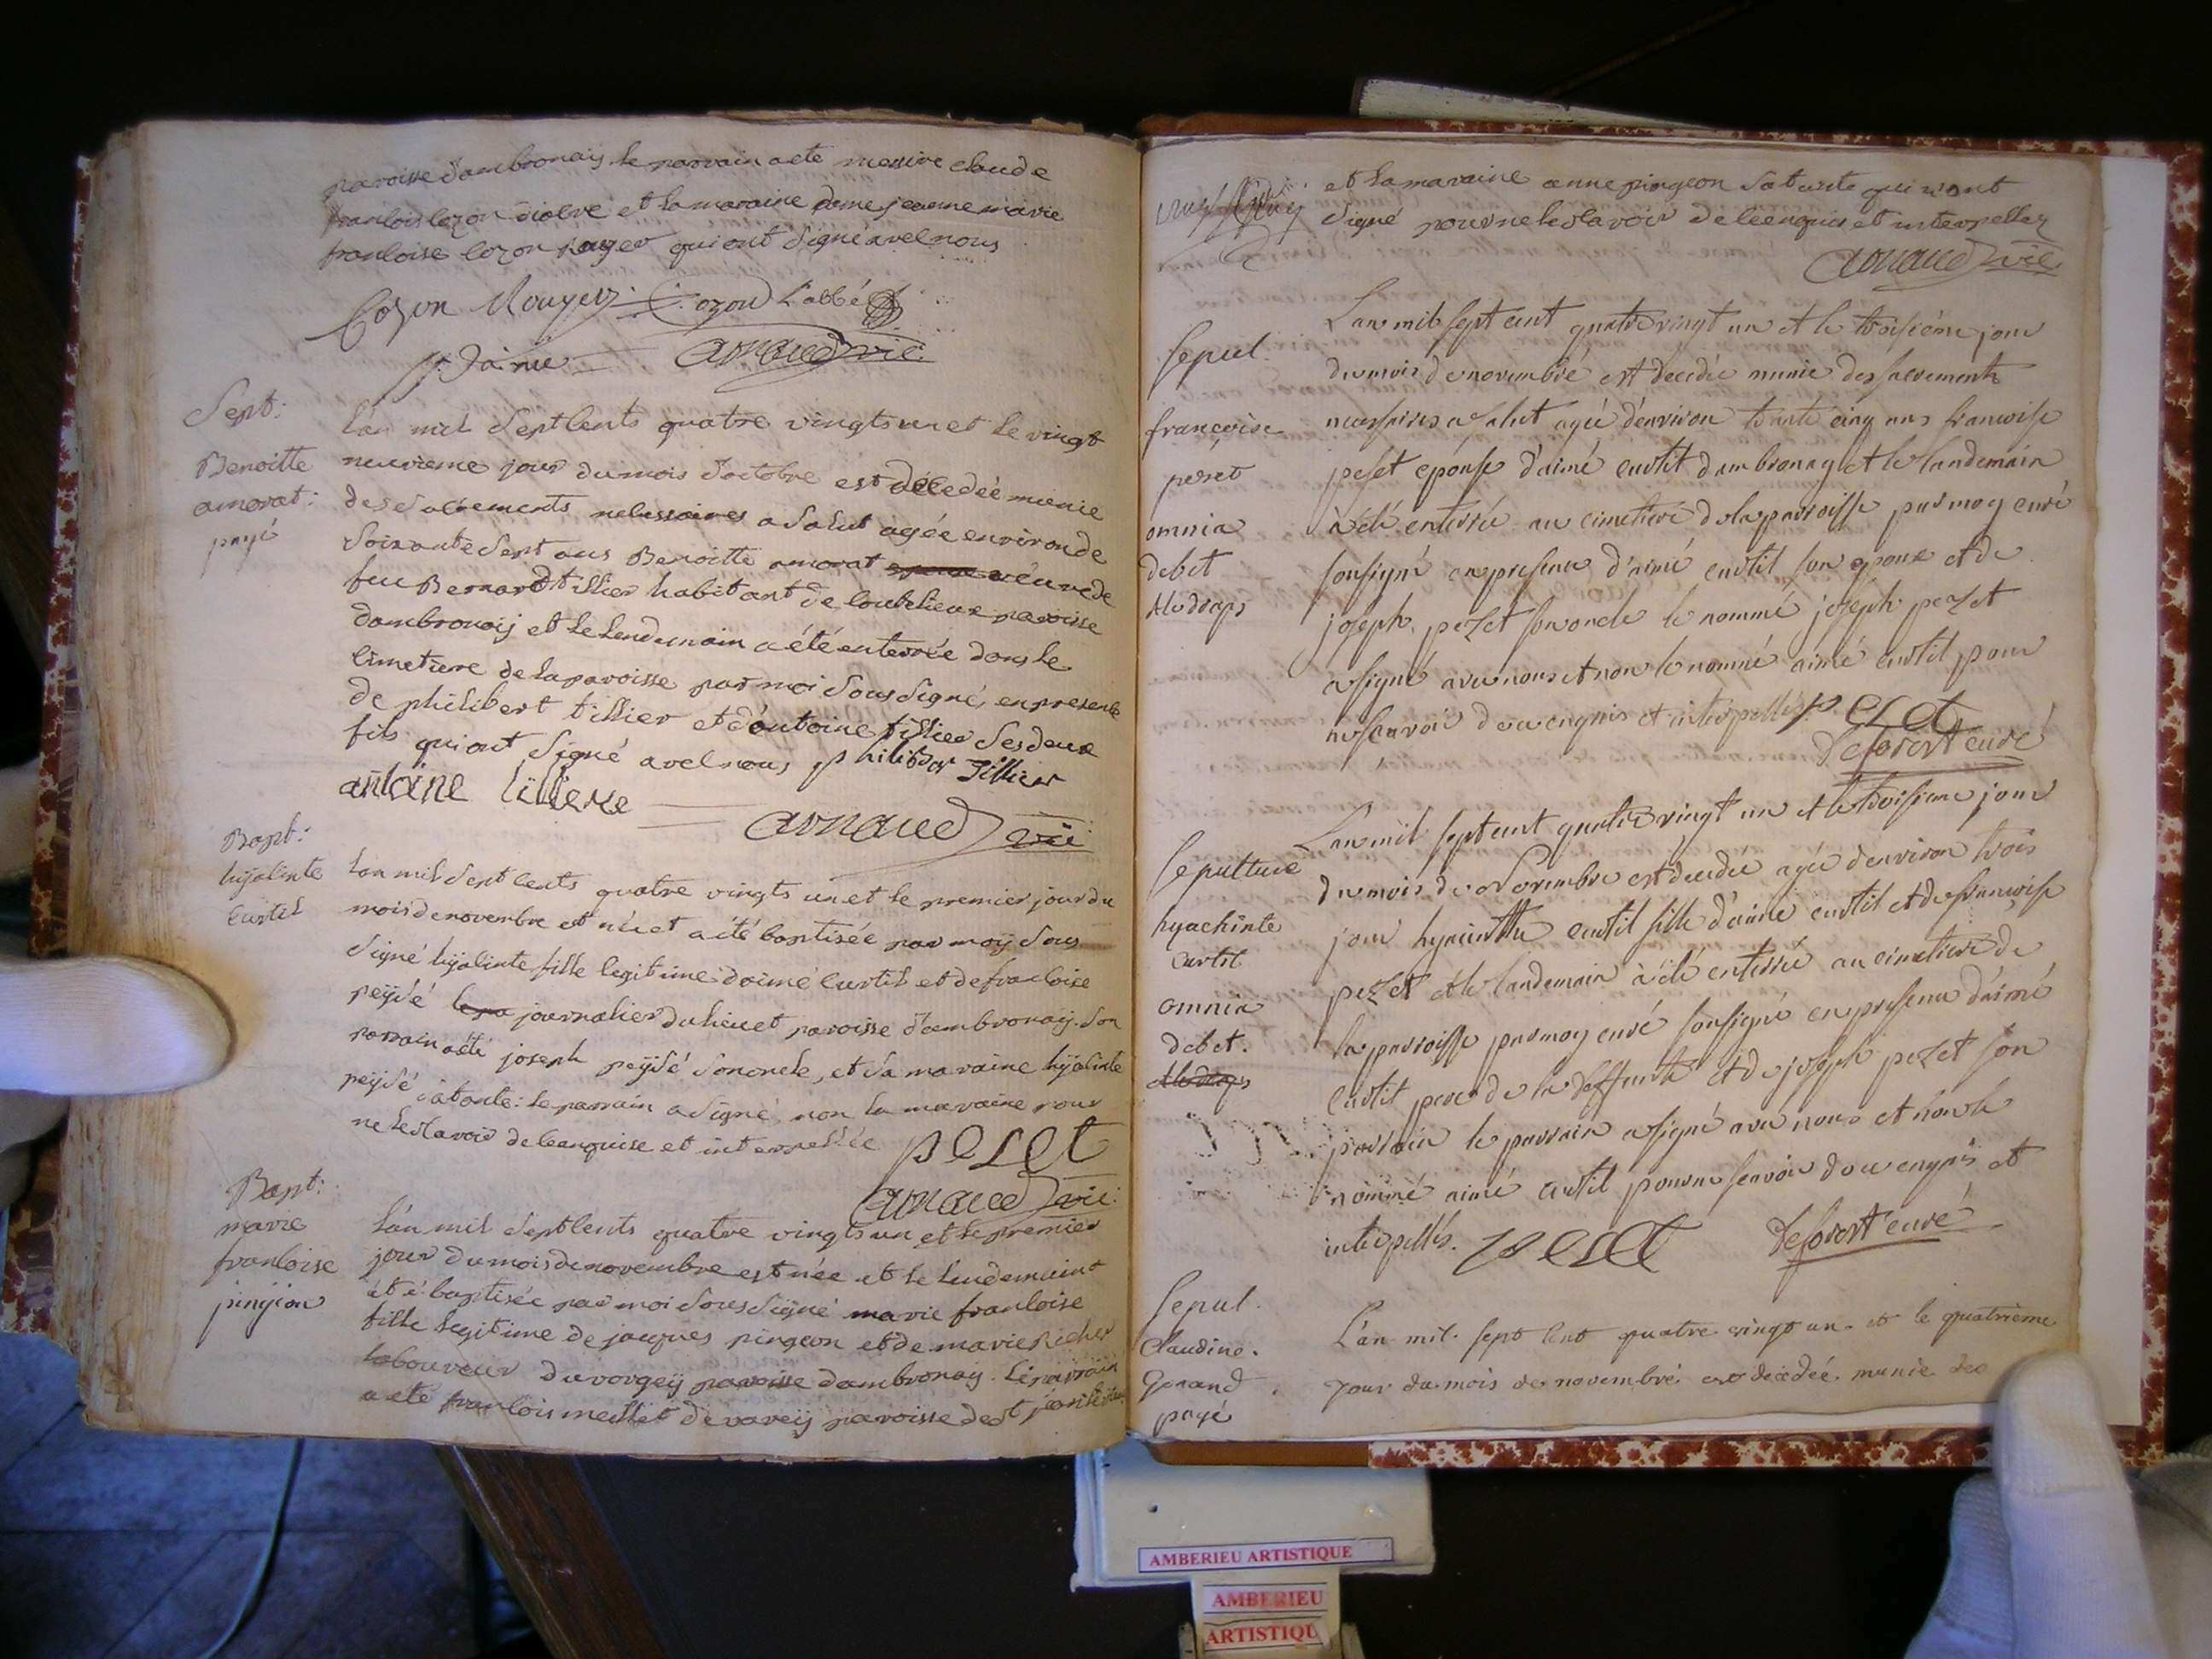 paroisse dambronay le parrain a ete messire claude
francois cozon diacre et la maraine dame jeanne marie
francoise cozon rouyer qui ont signé avec nous
Cozon Rouyer Cozon L'abbé
arnaud vic:
Sept:
Benoitte
amorat:
payé
L'an mil sept cents quatre vingts un et le vingt
neuvieme jour du mois d'octobre est décedéé munie
des sacrements necessaires a salut agée environ de
soixante sept ans Benoitte amorat veuve de
feu Bernard tillier habitant de coutelieux paroisse
dambronaij et le lendemain a été enterrée dans le
cimetiere de la paroisse par moi sous signé, en presence
de philibert tillier et d'antoine tillier ses deux
fils qui ont signé avec nous philiber Tillier
antoine tilliere
arnaud vic:
Bapt:
hijacinte
Curtil
L'an mil sept cents quatre vingts un et le premier jour du
mois de novembre est née et a été baptisée par moij sous
signé hijacinte fille legitime d'aimé curtil et de francoise
peijsé journalier du lieu et paroisse d'ambronaij. son
parrain a été joseph peijsé son oncle, et sa maraine hijacinte
peijsé sa tante: le parrain a signé, non la maraine pour
ne le scavoir de ce enquise et interpellée peset
arnaud vic:
Bapt:
marie
francoise
pinjion
L'an mil sept cents quatre vingts un et le premier
jour du mois de novembre est née et le lendemain a
été baptisée par moi sous signé marie francoise
fille legitime de jacques pingeon et de marie
laboureur du vorgeij paroisse dambronaij. le parrain
a été francois meillet de vareij paroisse de st jean le vieux
et la maraine anne pingeon sa tante qui n'ont
signé pour ne le scavoir de ce enquis et interpellez
arnaud vic:
Sepul.
françoise
peset
omnia
debet
L'an mil sept cent quatre vingt un et le troisième jour
du mois de novembre est decedée munie des sacrements
necessaires a salut agée d'environ trente cinq ans francoise
peset epouse d'aimé curtil d'ambronay et le landemain
à été enterrée au cimetiere de la parroisse par moy curé
sousigné en presence d'aimé curtil son epoux et de
joseph pezet son oncle le nommé joseph pezet
a signé avec nous et non le nommé aimé curtil pour
ne scavoir de ce enquis et interpellés. peset
deforest curé
Sepulture
hyachinte
Curtil
omnia
debet.
L'an mil sept cent quatre vingt un et le troisieme jour
du mois de Novembre est decedée agée d'environ trois
jour hyacinthe curtil fille d'aimé curtil et de francoise
pezet et le landemain à été enterrée au cimetiere de
la parroisse par moy curé sousigné en presence d'aimé
Curtil pere de la deffunte et de joseph pezet son
parrain le parrain a signé avec nous et non le
nommé aimé curtil pour ne scavoir de ce enquis et
interpellés. peset deforest curé
Sepul.
Claudine.
Grand
payé
L'an mil sept cent quatre vingt un et le quatrieme
jour du mois de novembre est decedée munie des
AMBERIEU ARTISTIQUE
AMBERIEU
ARTISTIQU